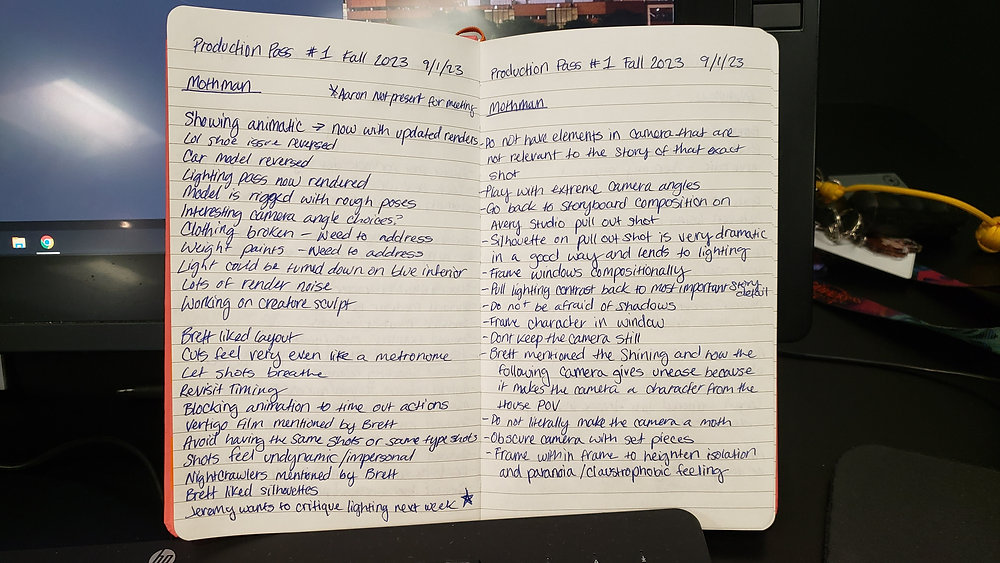 Production Pass #1 Fall 2023 9/1/23
Mothman
*Aaron not present for meeting
Showing animatic → now with updated renders
Lol shoe issue reversed
Car model reversed
Lighting pass now rendered
Model is rigged with rough poses
Interesting camera angle choices?
Clothing broken - Need to address
Weight paints - Need to address
Light could be turned down on blue interior
Lots of render noise
Working on creature sculpt
Brett liked layout
Cuts feel very even like a metronome
Let shots breathe
Revisit Timing
Blocking animation to time out actions
Vertigo Film mentioned by Brett
Avoid having the same shots or same type shots
Shots feel undynamic/impersonal
Nightcrawlers mentioned by Brett
Brett liked silhouettes
Jeremy wants to critique lighting next week ☆
Production Pass #1 Fall 2023 9/1/23
Mothman
-Do not have elements in camera that are
not relevant to the story of that exact
shot
-Play with extreme camera angles
-Go back to storyboard composition on
Avery Studio pull out shot
-Silhouette on pull out shot is very dramatic
in a good way and lends to lighting
-Frame windows compositionally
-Pull lighting contrast back to most important story
detail
-Do not be afraid of shadows
-Frame character in window
-Dont keep the camera still
-Brett mentioned the Shining and how the
following camera gives unease because
it makes the camera a character from the
House POV
-Do not literally make the camera a moth
-Obscure camera with set pieces
-Frame within frame to heighten isolation
and paranoia/claustrophobic feeling
hp